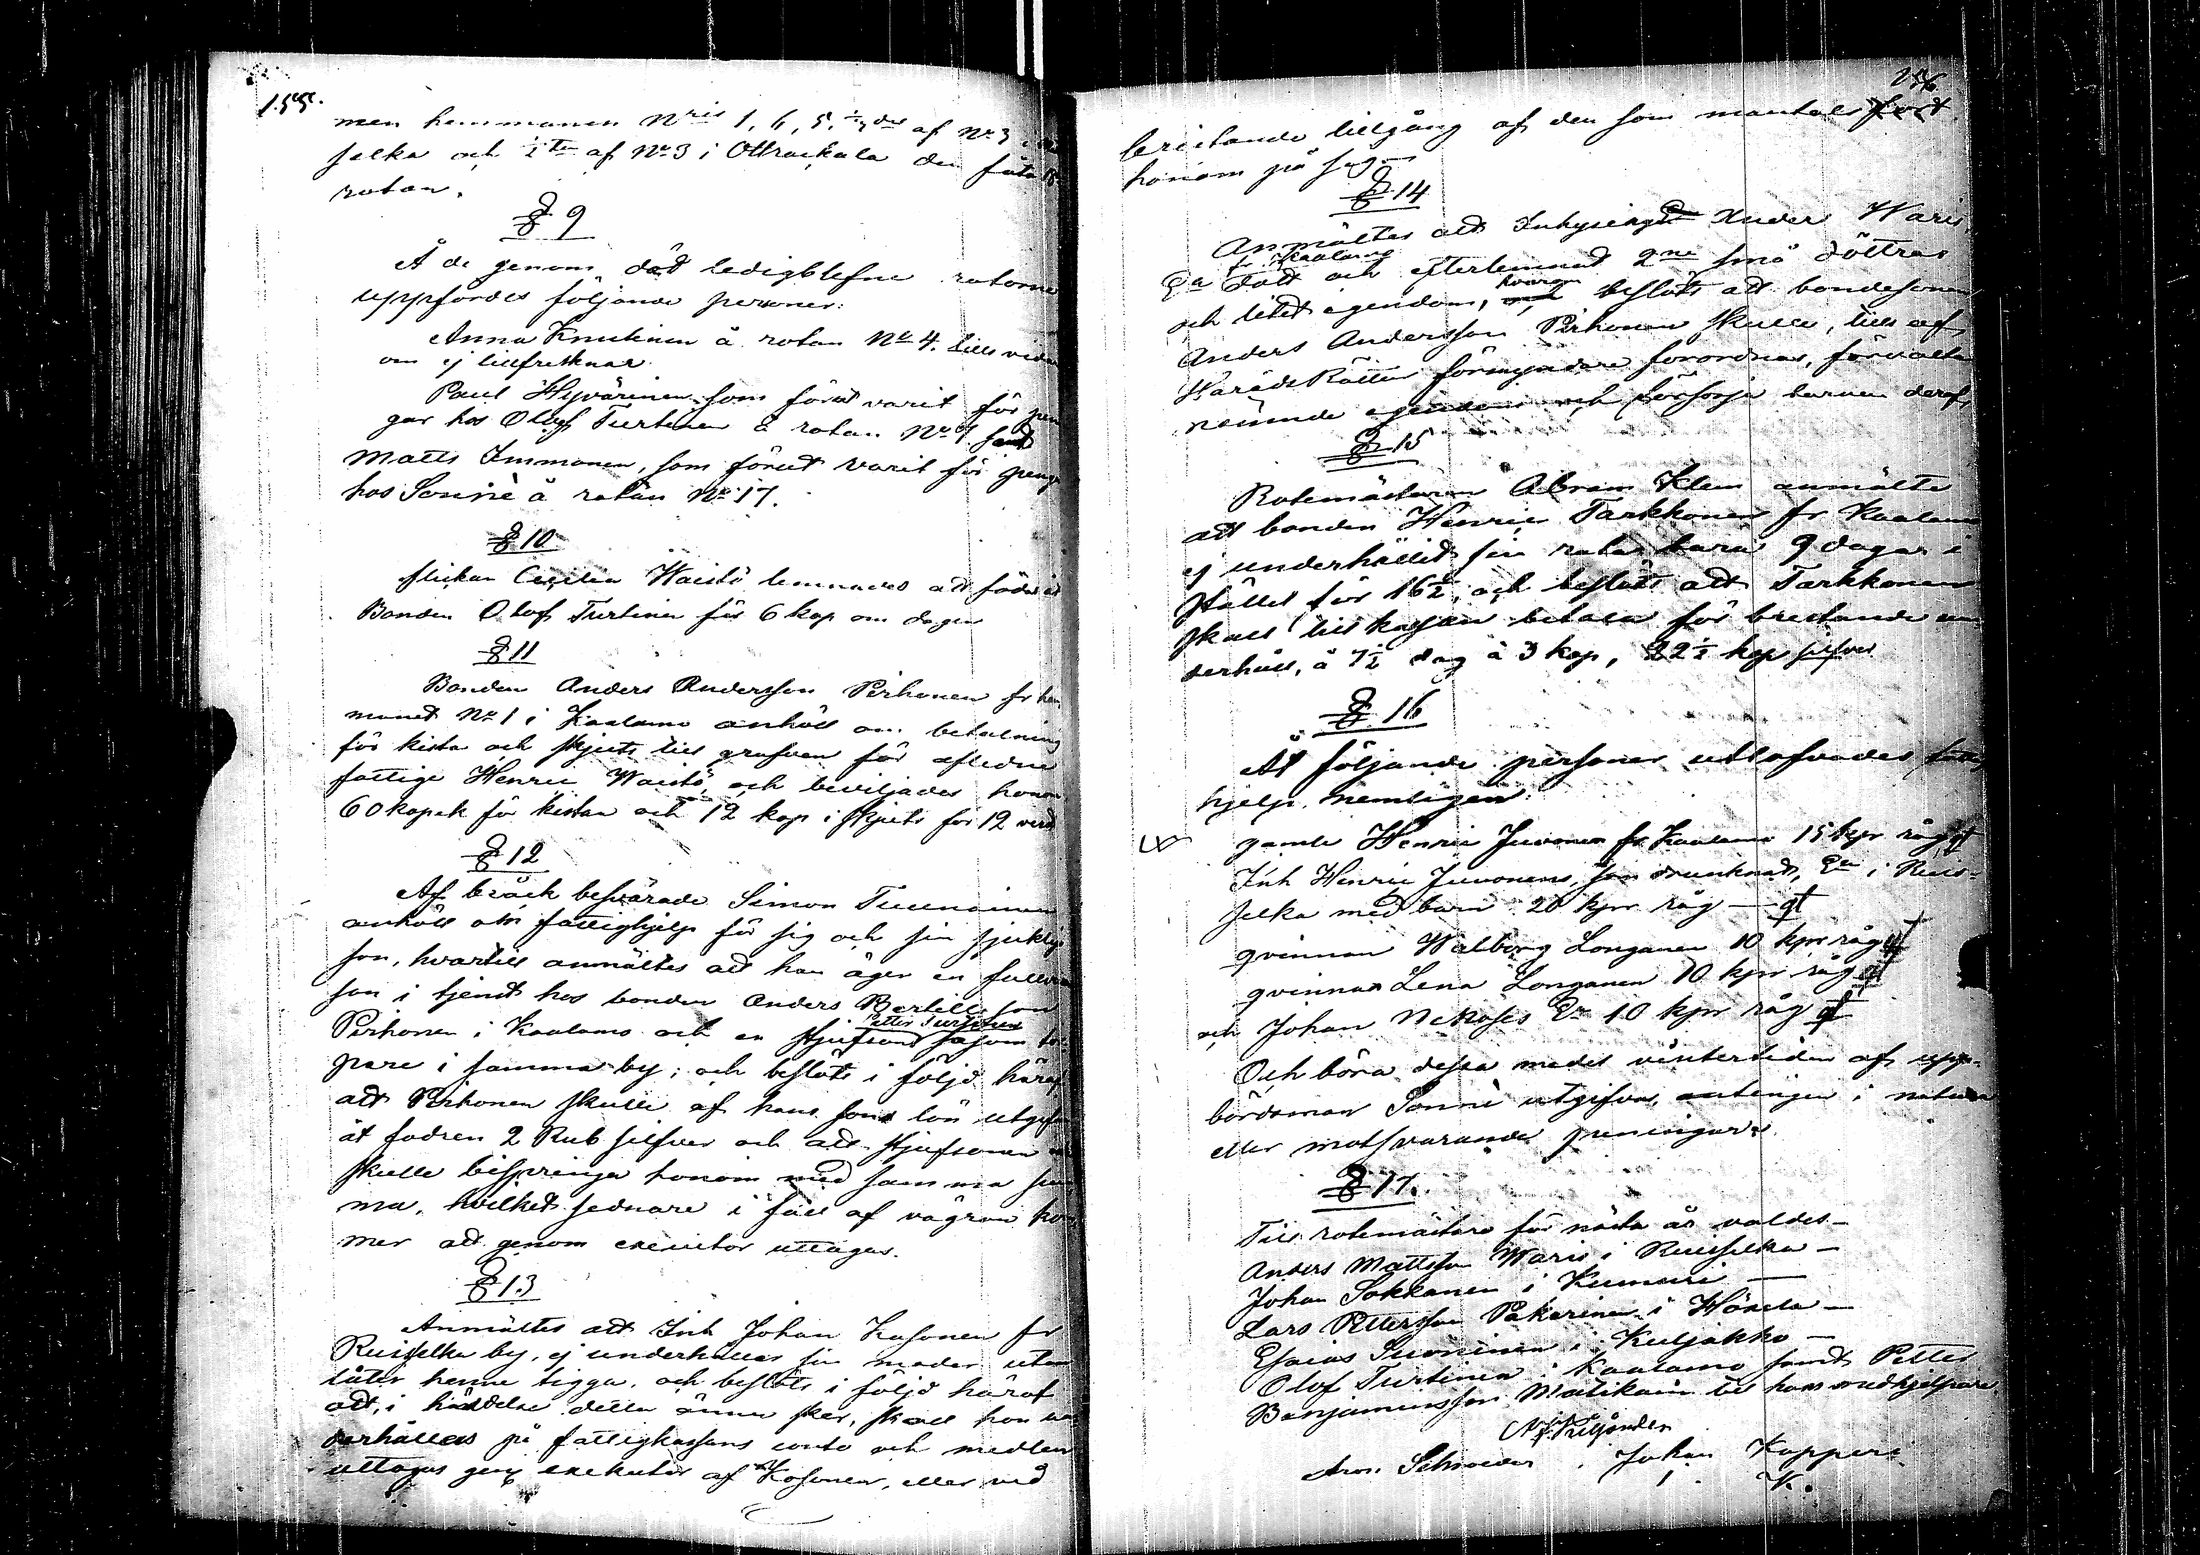 155.
men hemmanen Nris 1, 6, 5, af No 3 i
selka och af No 3 i Ottrackala den
rotan.
§ 9
Å de genom död ledigblefne rotorne
uppfördes följande personer:
Anna Knutinen å rotan No 4. tills vidare
om ej tillfrisknar
Paul Hyvärinen som förut varit för pen
gar hos Olof Turtinen å rotan No 7 samt
Matts Immonen, som förut varit för peng
hos Sonnè å rotan No 17.
§ 10
flickan Cecilia Waistö lemnades att födas åt
Bonden Olof Turtinen för 6 kop om dagen
§ 11
Bonden Anders Andersson Pirhonen fr hem
manet No 1 i Kaalamo anhöll om betalning
för kista och skjuts till grafven för aflidne
fattige Henric Waistö, och beviljades honom
60 kopek för kistan och 12 kop i skjuts för 12 verst
§ 12
Af bråck besvärade Simon Tuunainen
anhöll om fattighjelp för sig och sin sjuklige
son, hvartill anmältes att han äger en fullvux
son i tjenst hos bonden Anders Bertilsson
Petter Turtinen
Pirhonen i Kaalamo och en styfson såsom tor
pare i samma by; och beslöts i följd häraf
att Pirhonen skulle af hans sons lön utgifva
åt fadren 2 Rub silfver och att styfsonen
skulle bispringa honom med samma sum
ma, hvilket sednare i fall af vägran kom
mer att genom executor uttagas.
§ 13
Anmältes att Inh Johan Kosonen fr
Ruisselka by, ej underhåller sin moder utan
låter henne tigga, och beslöts i följd häraf
att, i händelse detta ännu sker, skall hon un
derhållas på fattigkassans conto och medlen
uttagas gen executor af Kosonen, eller vid
256
bristande tillgång af den som mantalsfört
honom på sig
§ 14
Anmältes att Inhysing Ander Waris
fr Kaalamo
Da död och efterlemnat 2ne små döttrar
och litet egendom, hvaron beslöts att bondesonen
Anders Andersson Pirhonen skulle, tills af
HäradsRätten förmyndare förordnas, förvalta
nämnde egendom och försörja barnen deraf
§ 15
Rotemästaren Abram Klem anmälte
att bonden Henric Tarkkonen fr Kaalamo
ej underhållit sin rota bara 9 dagar i
stället för 16½, och beslöts att Tarkkonen
skall till kassan betala för bristande un
derhåll, à 7½ dag à 3 kop, 22½ kop silfver
§ 16
Åt följande personer utlofvades fattig
hjelp. nemligen
gamle Henric Juvonen fr Kaalamo 15 kpr råg
Inh Henric Juvonens, som drunknat, Ea i Ruis-
selka med barn 20 kpr råg
qvinnan Walborg Longanen 10 kpr råg
qvinnan Lena Longanen 10 kpr råg
och Johan Ea 10 kpr råg
Och böra dessa medel vintertiden af upp-
bördsman Sonnè utgifvas, antingen i natura
eller motsvarande penningar.
§ 17.
Till rotemästare för nästa år valdes—
Anders Mattsson Waris i Ruisselka—
Johan Sokkanen i Kumuri—
Lars Pettersson Pakarinen i Hämela—
Esaias Suoninen i Kuljakko—
Olof Turtinen i Kaalamo samt Petter
Benjaminsson Matikain till hans medhjelpare
Aron Schroeder. Johan Kopperi
K.